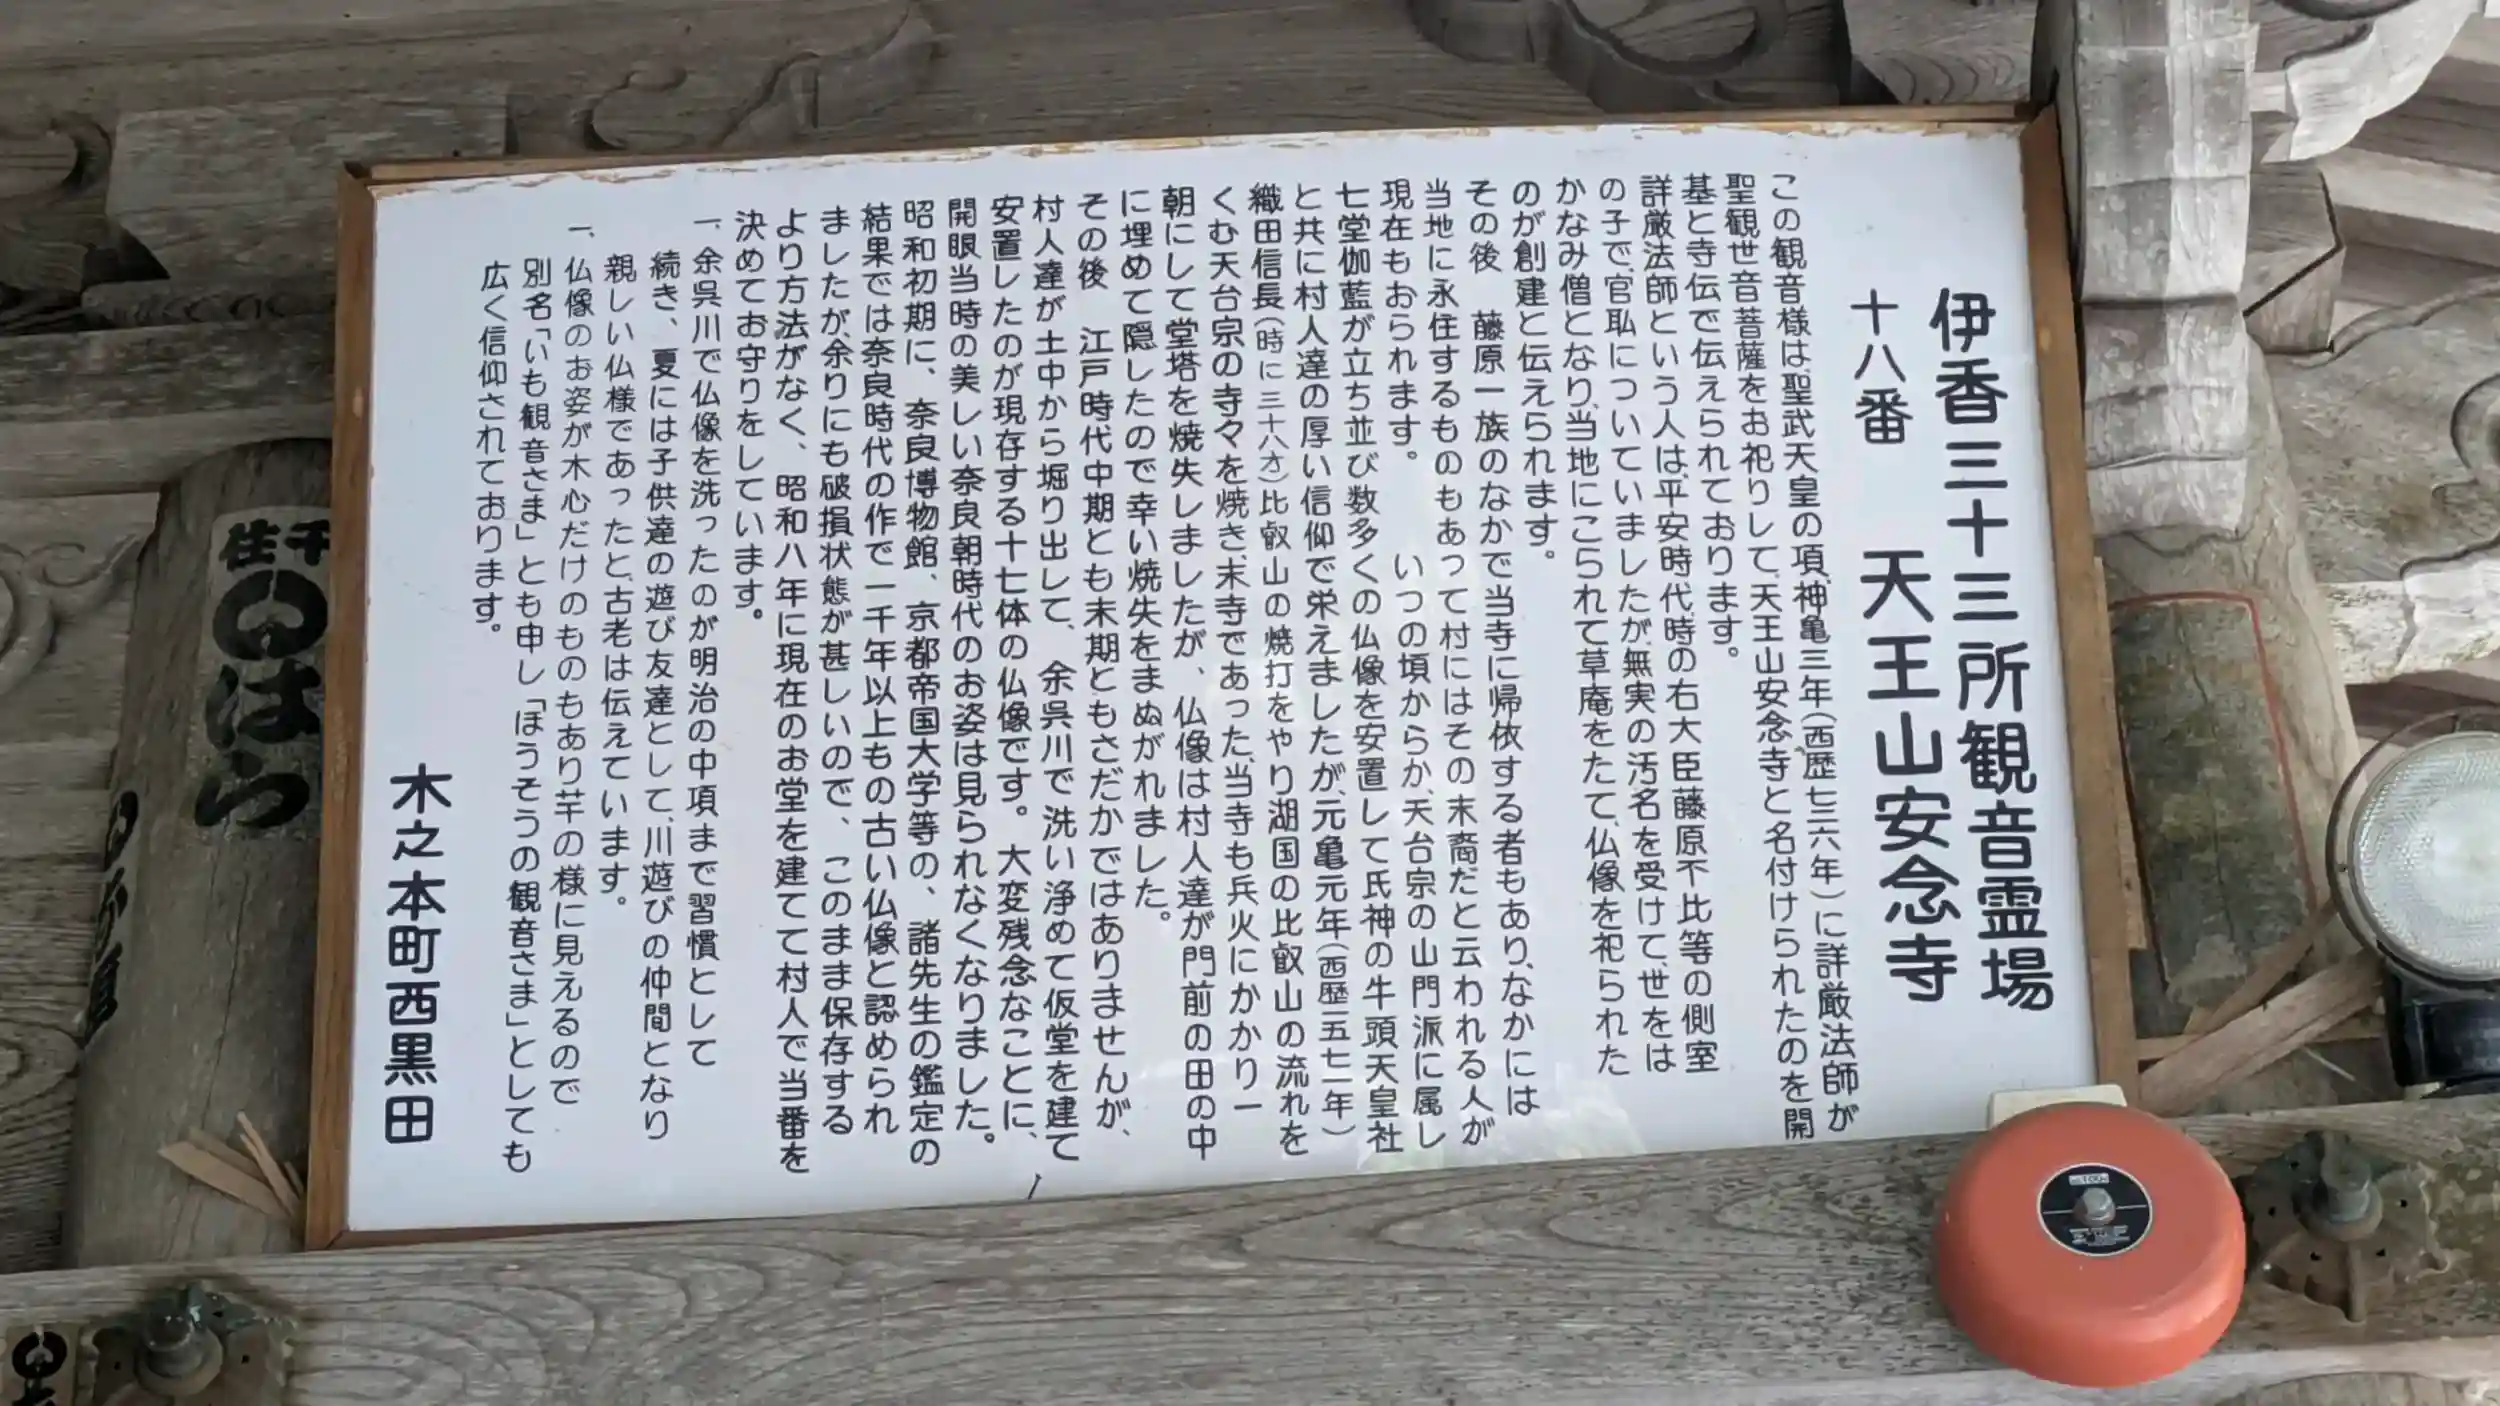 伊香三十三所観音霊場
十八番　天王山安念寺
この観音様は、聖武天皇の項、神亀三年(西歴七二六年)に詳厳法師が
聖観世音菩薩をお祀りして、天王山安念寺と名付けられたのを開
基と寺伝で伝えられております。
詳厳法師という人は、平安時代、時の右大臣藤原不比等の側室
の子で、官職についていましたが、無実の汚名を受けて、世をは
かなみ僧となり、当地にこられて草庵をたて、仏像を祀られた
のが創建と伝えられます。
その後　藤原一族のなかで当寺に帰依する者もあり、なかには
当地に永住するものもあって村にはその末裔だと云われる人が
現在もおられます。　いつの頃からか、天台宗の山門派に属し
七堂伽藍が立ち並び数多くの仏像を安置して氏神の牛頭天皇社
と共に村人達の厚い信仰で栄えましたが、元亀元年(西歴一五七一年)
織田信長(時に三十八才)比叡山の焼打をやり湖国の比叡山の流れを
くむ天台宗の寺々を焼き、末寺であった、当寺も兵火にかかり一
朝にして堂塔を焼失しましたが、仏像は村人達が門前の田の中
に埋めて隠したので幸い焼失をまぬがれました。
その後　江戸時代中期とも末期ともさだかではありませんが、
村人達が土中から堀り出して、余呉川で洗い浄めて仮堂を建て
安置したのが現存する十七体の仏像です。大変残念なことに、
開眼当時の美しい奈良朝時代のお姿は見られなくなりました。
昭和初期に、奈良博物館、京都帝国大学等の、諸先生の鑑定の
結果では奈良時代の作で一千年以上もの古い仏像と認められ
ましたが、余りにも破損状態が甚しいので、このまま保存する
より方法がなく、昭和八年に現在のお堂を建てて村人で当番を
決めてお守りをしています。
一、余呉川で仏像を洗ったのが明治の中項まで習慣として
続き、夏には子供達の遊び友達として、川遊びの仲間となり
親しい仏様であったと、古老は伝えています。
一、仏像のお姿が木心だけのものもあり芋の様に見えるので
別名「いも観音さま」とも申し「ほうそうの観音さま」としても
広く信仰されております。
木之本町西黒田
千住
はら